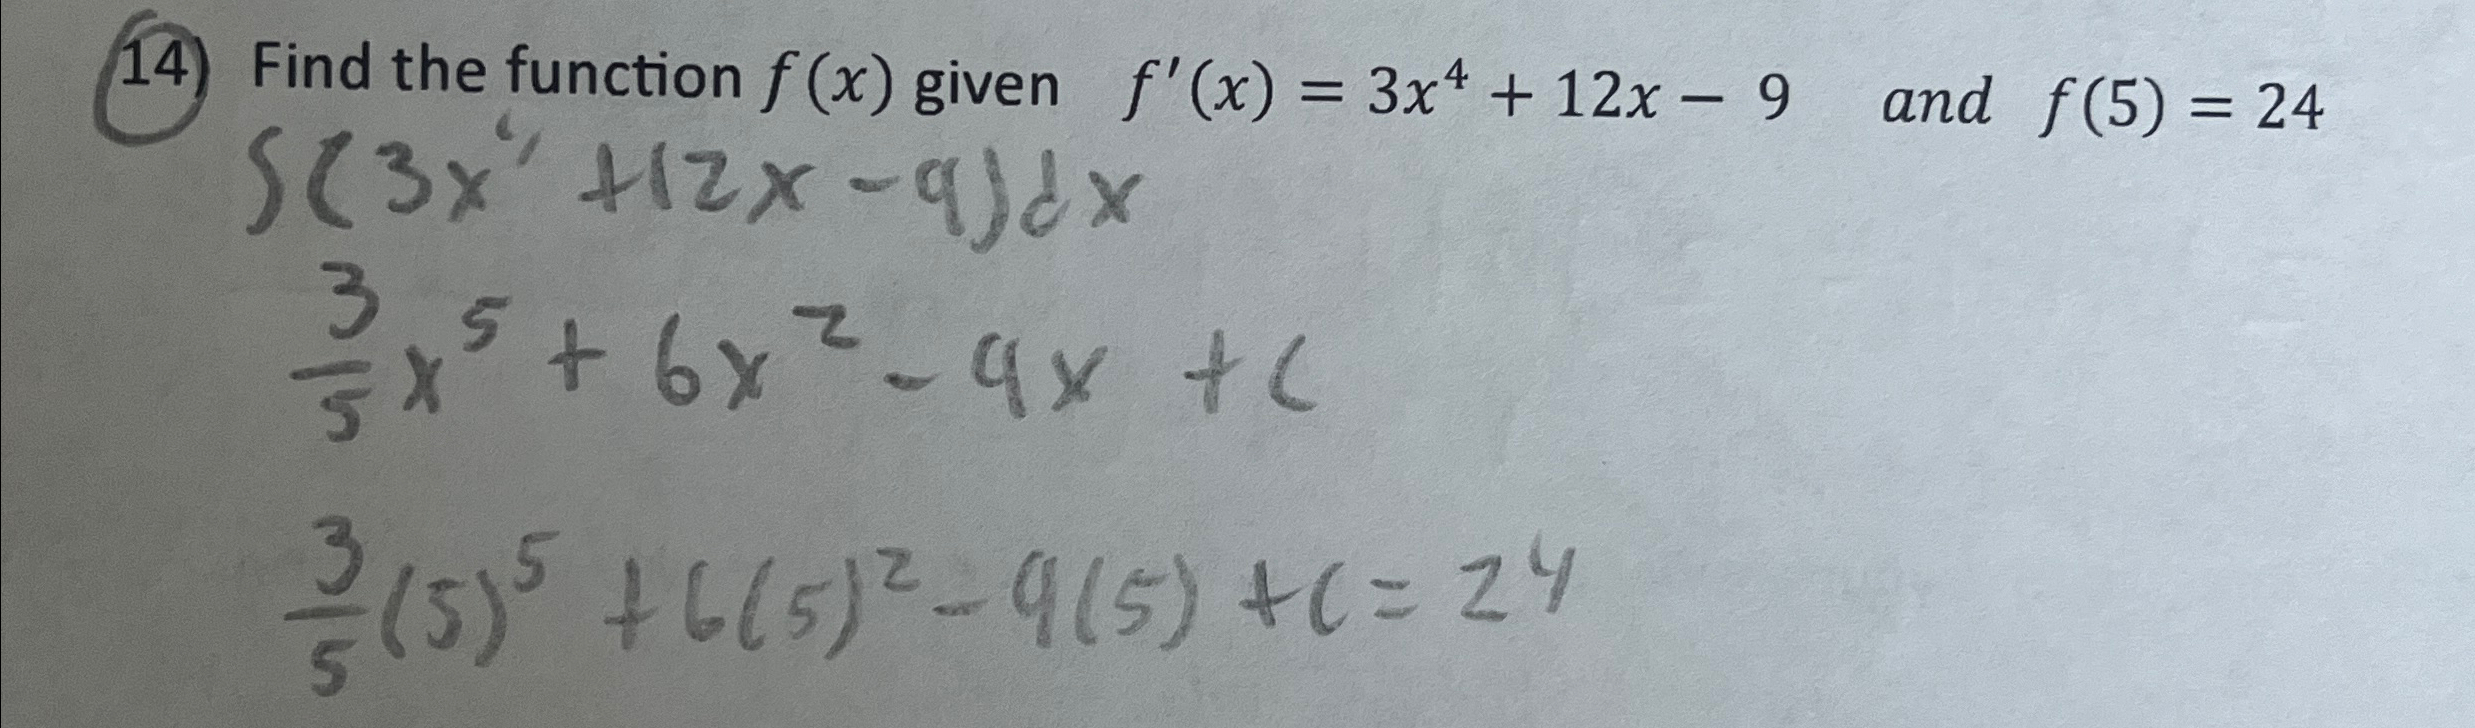 14) Find the function f(x) given f'(x) = 3x⁴ + 12x − 9 and f(5) = 24
∫(3x⁴ + 12x − 9)dx
3/5 x⁵ + 6x² − 9x + C
3/5 (5)⁵ + 6(5)² − 9(5) + C = 24